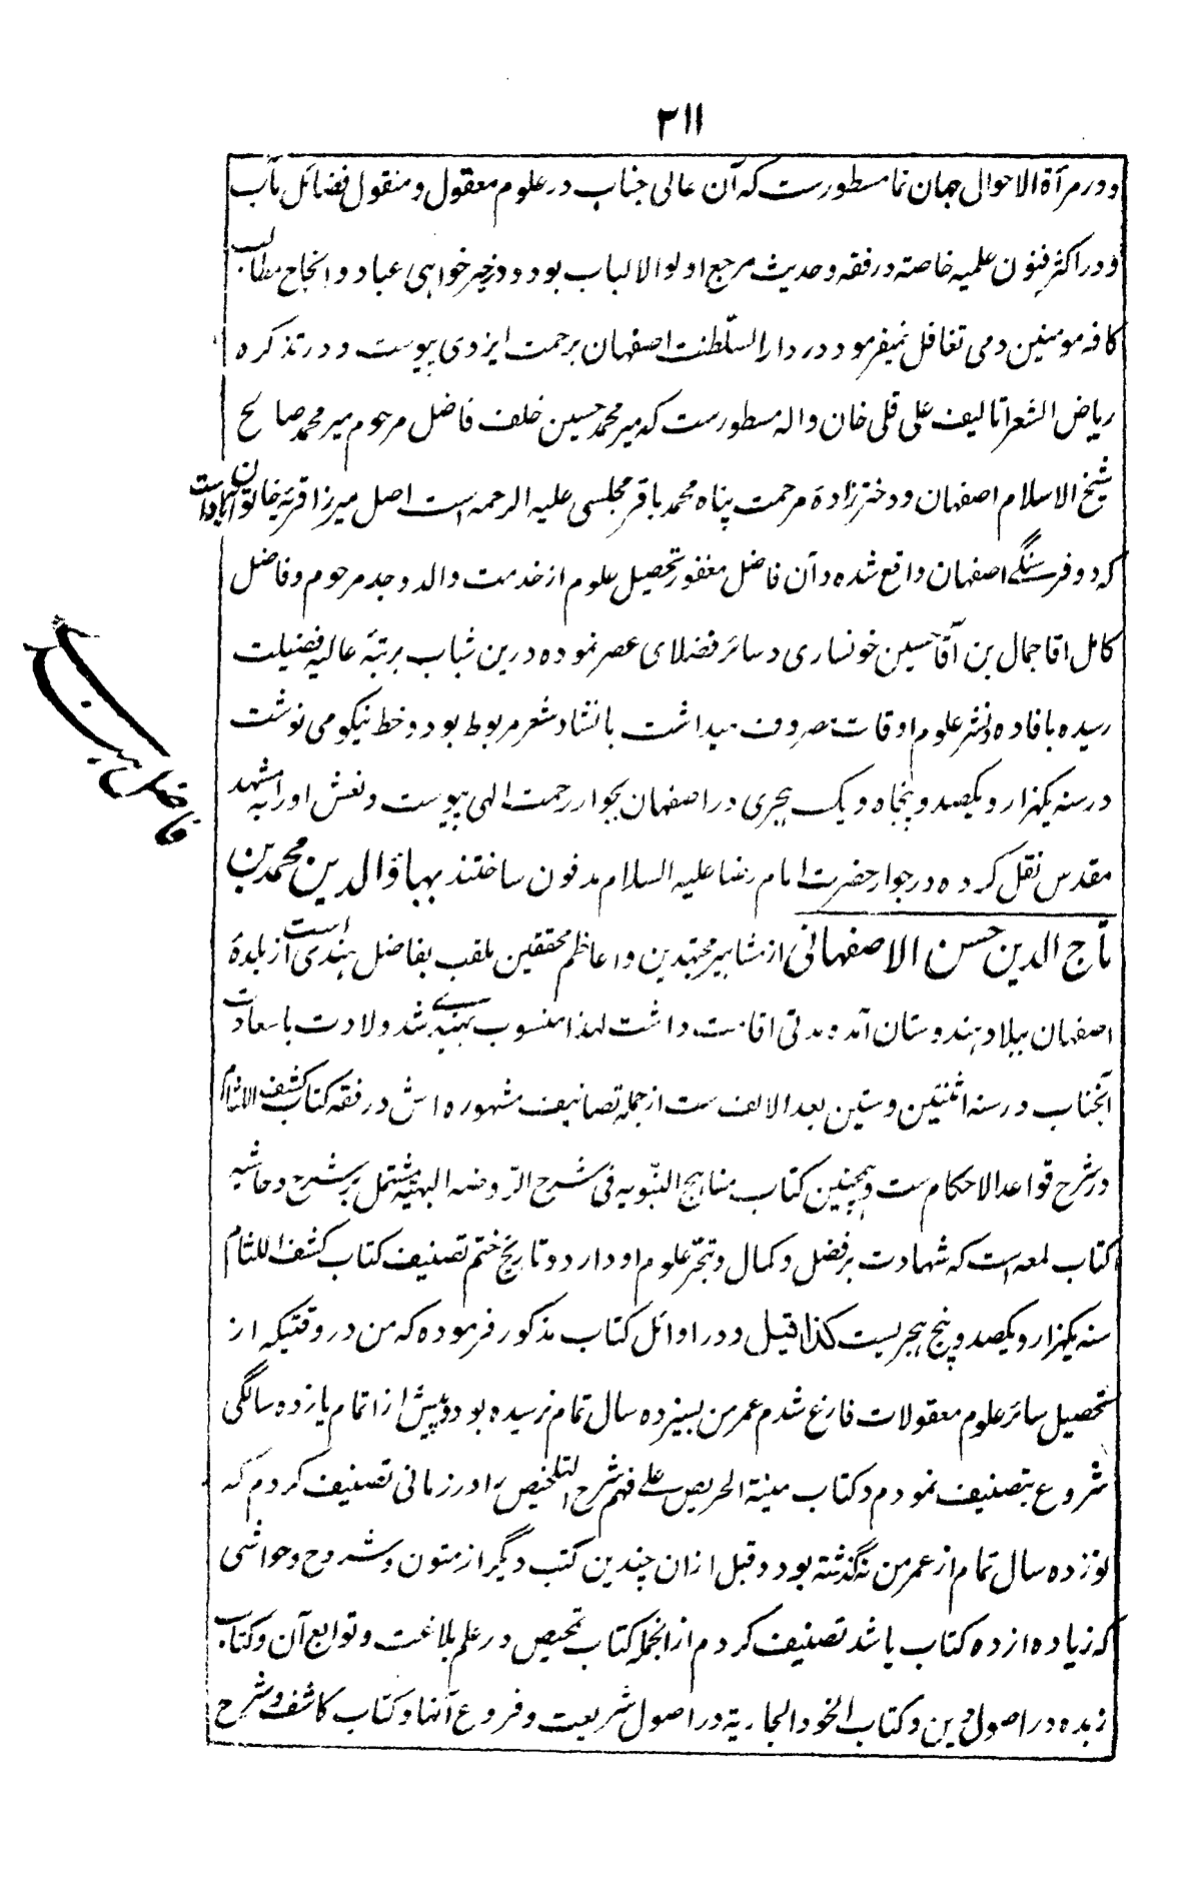 ۳۱۱
و در مرآة الاحوال جهان نما مسطورست که آن عالی جناب در علوم معقول و منقول فضائل مآب
و در اکثر فنون علمیه خاصة در فقه و حدیث مرجع اولو الالباب بود و در خیر خواهی عباد و انجاح مطالب
کافه مومنین دمی تغافل نمیفرمود در دار السلطنت اصفهان برحمت ایزدی پیوست و در تذکره
ریاض الشعرا تالیف علی قلی خان واله مسطورست که میر محمد حسین خلف فاضل مرحوم میر محمد صالح
شیخ الاسلام اصفهان و دختر زادهٔ مرحمت پناه محمد باقر مجلسی علیه الرحمه است اصل میرزا قریهٔ خاتون آبادست
که دو فرسنگے اصفهان واقع شده و آن فاضل مغفور تحصیل علوم از خدمت والد و جد مرحوم و فاضل
کامل اقا جمال بن آقا حسین خونساری و سائر فضلای عصر نموده در ین شباب برتبهٔ عالیه فضیلت
رسیده بافاده و نشر علوم اوقات مصروف میداشت بانشاد شعر مربوط بود و خط نیکو می نوشت
در سنه یکهزار و یکصد و پنجاه و یک هجری در اصفهان بجوار رحمت الهی پیوست و نعش او را به مشهد
مقدس نقل کرده در جوار حضرت امام رضا علیه السلام مدفون ساختند بهاؤ الدین محمد بن
تاج الدین حسن الاصفهانی از مشاهیر مجتهدین و اعاظم محققین ملقب بفاضل هندی است از بلدهٔ
اصفهان ببلاد هندوستان آمده مدتی اقامت داشت لهذا منسوب بهند شد ولادت باسعادت
آنجناب در سنه اثنتین و ستین بعد الالف ست از جمله تصانیف مشهوره اش در فقه کتاب کشف اللثام
در شرح قواعد الاحکام ست و همچنین کتاب مناهج النبویه فی شرح الروضه البهیه مشتمل بر شرح و حاشیه
کتاب لمعه است که شهادت بر فضل و کمال و تبحر علوم او دارد و تاریخ ختم تصنیف کتاب کشف اللثام
سنه یکهزار و یکصد و پنج هجریست کذا قیل و در اوائل کتاب مذکور فرموده که من در وقتیکه از
تحصیل سائر علوم معقولات فارغ شدم عمر من بسیزده سال تمام نرسیده بود و پیش از اتمام یازده سالگی
شروع بتصنیف نمودم و کتاب منیة الحریص علے فهم شرح التلخیص را در زمانی تصنیف کردم که
نوزده سال تمام از عمر من نگذشته بود و قبل از ان چندین کتب دیگر از متون و شروح و حواشی
که زیاده از ده کتاب باشد تصنیف کردم از انجمله کتاب تمحیص در علم بلاغت و توابع آن و کتاب
زبده در اصول دین و کتاب الخود الجاریة در اصول شریعت و فروع آنها و کتاب کاشف و شرح
فاضل هندی